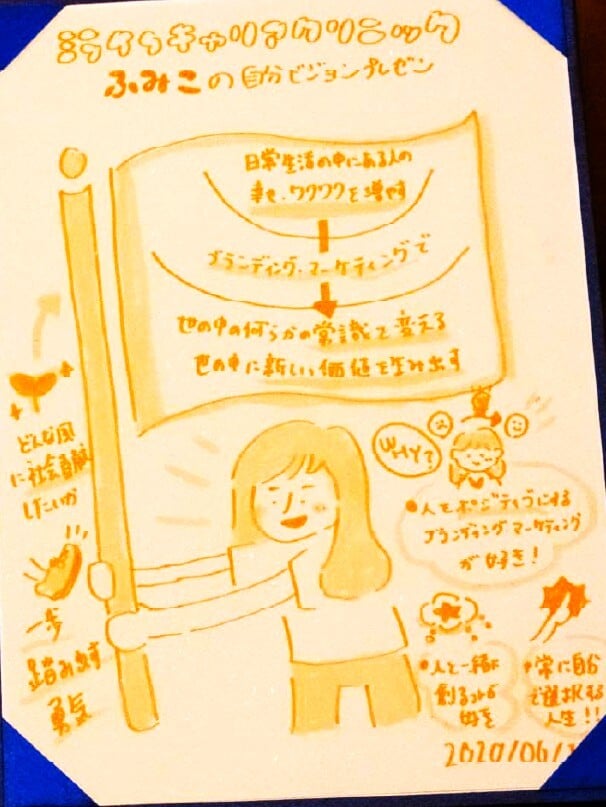 ミライキャリアクリニック
ふみこの自分ビジョンプレゼン
日常生活の中にある人の
幸せ・ワクワクを増やす
ブランディング・マーケティングで
世の中の何らかの常識を変える
世の中に新しい価値を生み出す
どんな風
に社会貢献
したいか
一歩
踏み出す
勇気
WHY?
●人をポジティブにする
ブランディングマーケティング
が好き!
●人と一緒に
創るコトが
好き
●常に自分
で選択する
人生!!
2020/06/